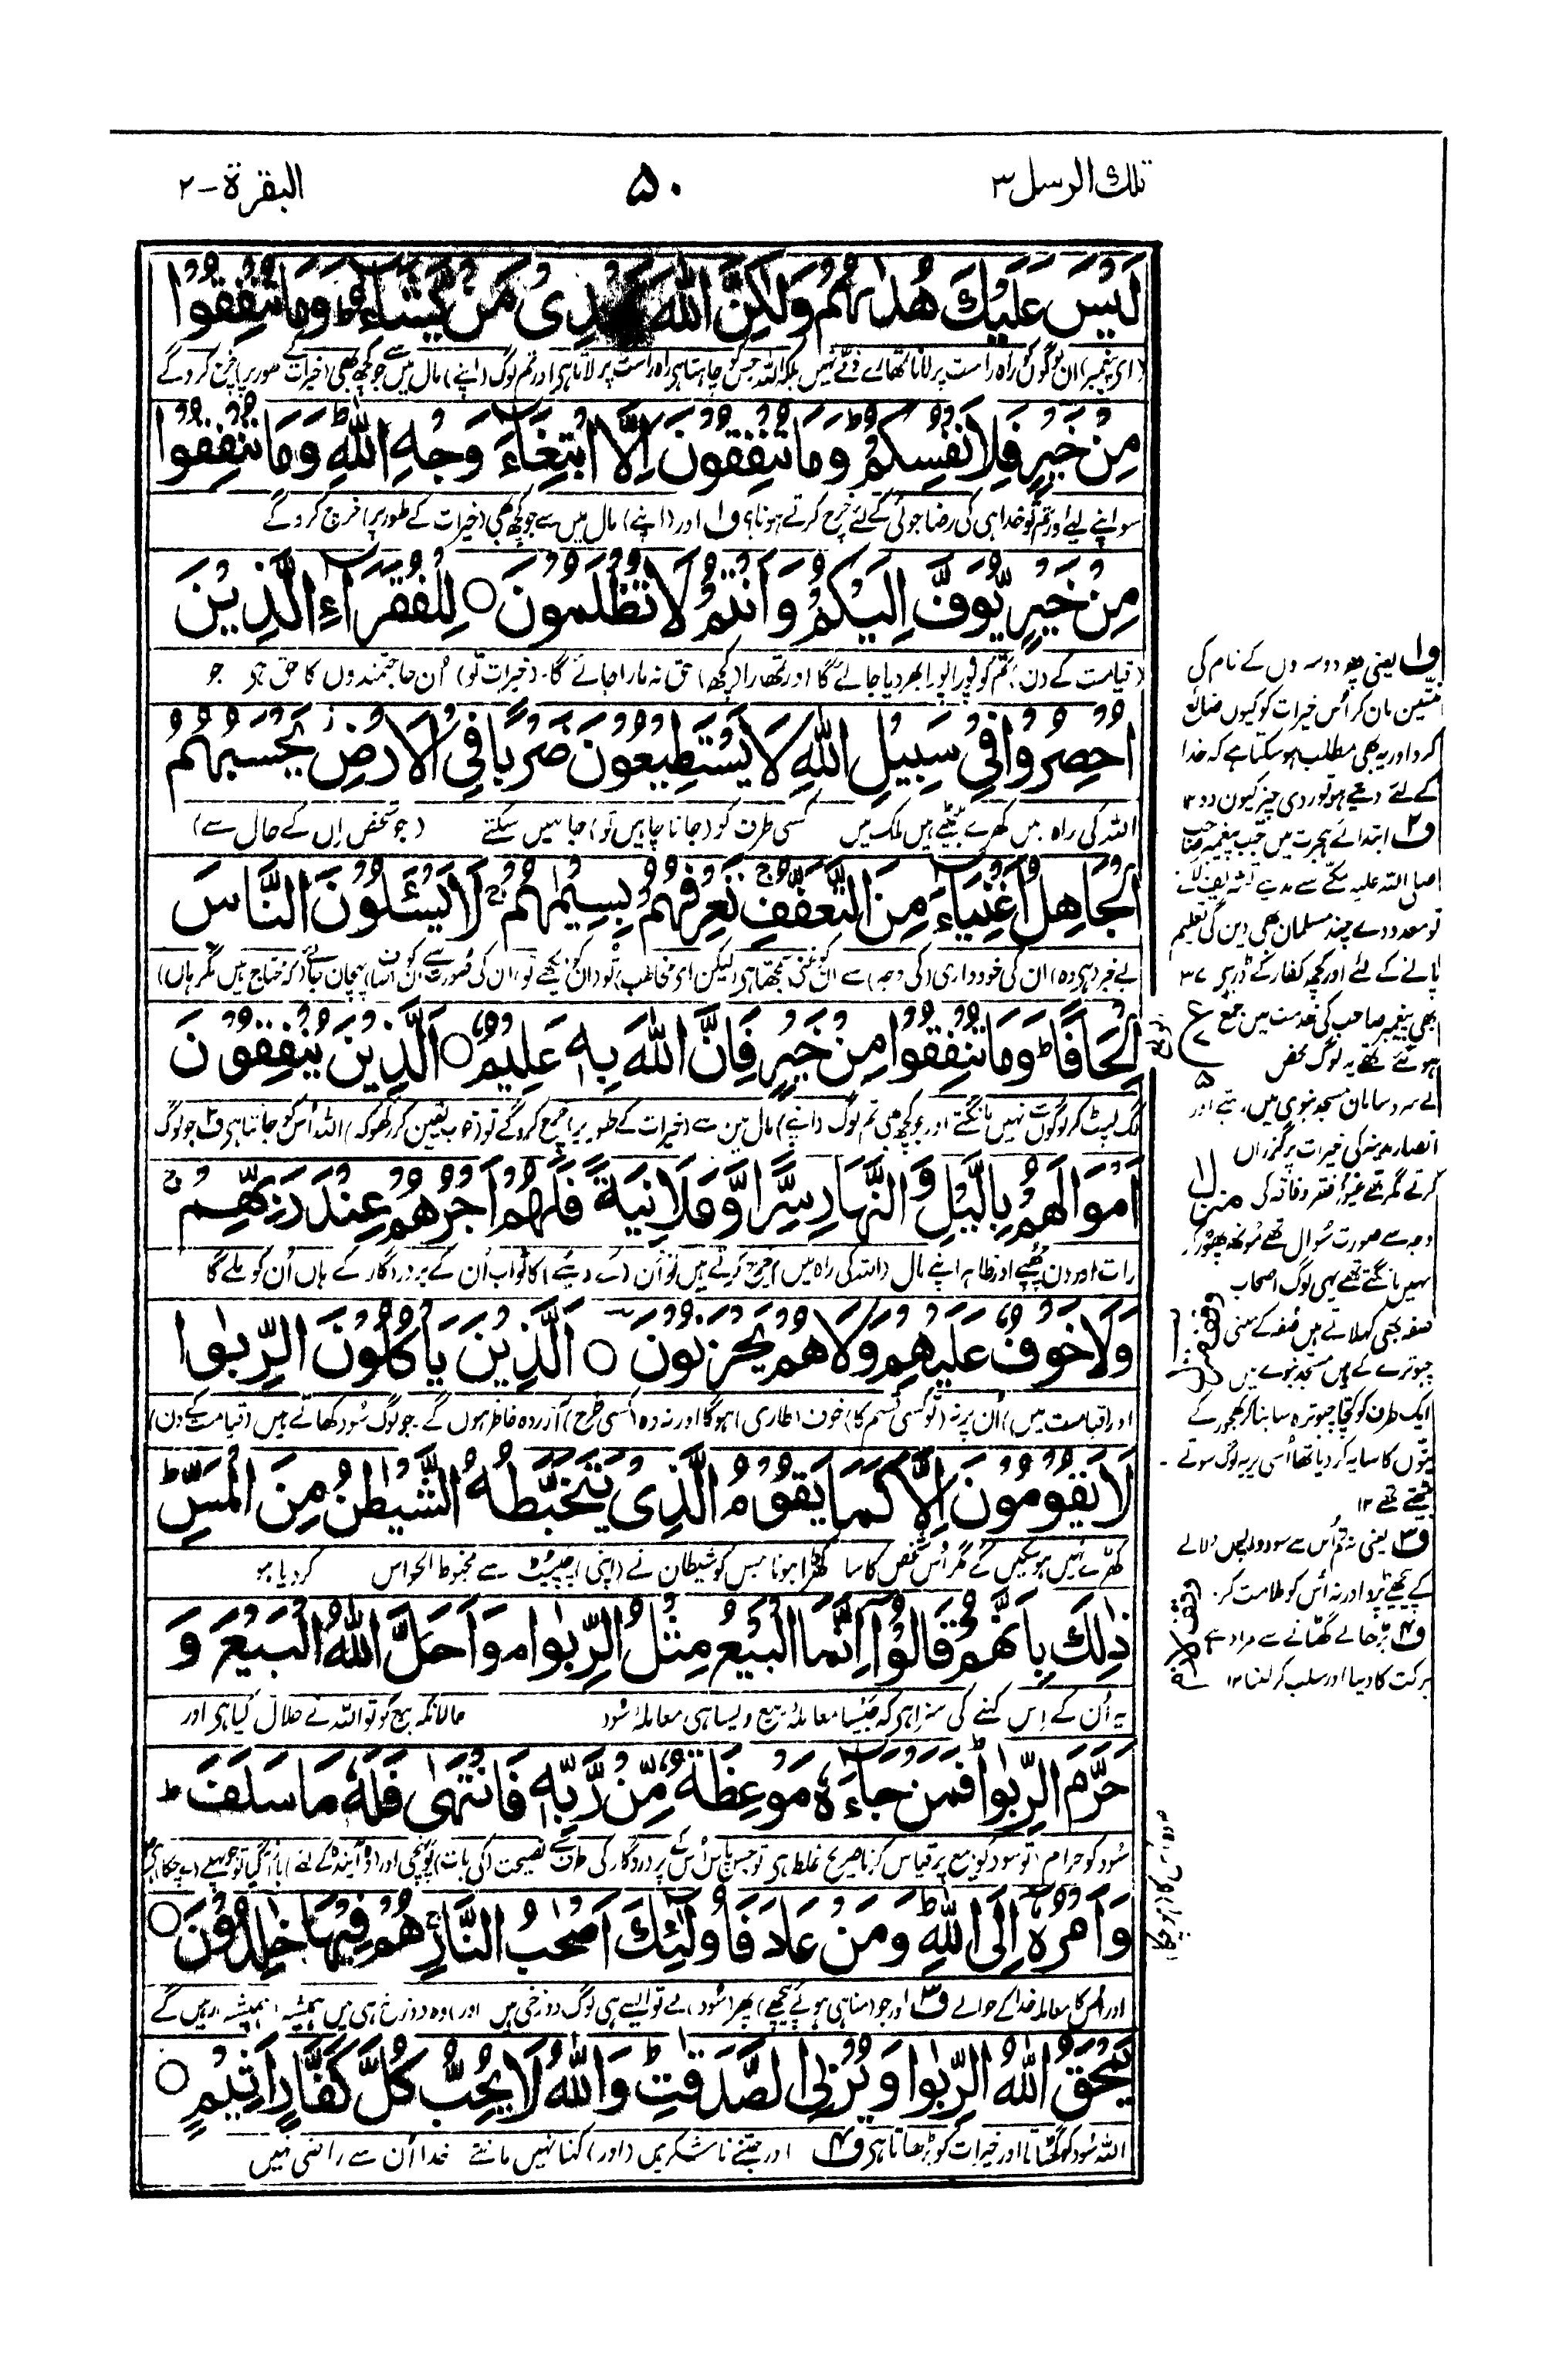 تلك الرسل ۳
۵۰
البقرة - ۲
لَيْسَ عَلَيْكَ هُدٰىهُمْ وَلٰكِنَّ اللّٰهَ يَهْدِىْ مَنْ يَّشَآءُ ؕ وَمَا تُنْفِقُوْا
(ای پیغمبر) ان لوگوں کو راہ راست پر لانا تمھارے ذمّے نہیں بلکہ اللہ جس کو چاہتا ہی راہ راست پر لاتا ہی اور تم لوگ (اپنے) مال میں سے جو کچھ بھی (خیرات کے طور پر) خرچ کرو گے
مِنْ خَيْرٍ فَلِاَنْفُسِكُمْ ؕ وَمَا تُنْفِقُوْنَ اِلَّا ابْتِغَآءَ وَجْهِ اللّٰهِ ؕ وَمَا تُنْفِقُوْا
سو اپنے لیے اور تم تو خدا ہی کی رضا جوئی کے لئے خرچ کرتے ہو نا؟ ف۱ اور (اپنے) مال میں سے جو کچھ بھی (خیرات کے طور پر) خرچ کرو گے
مِنْ خَيْرٍ يُّوَفَّ اِلَيْكُمْ وَاَنْتُمْ لَا تُظْلَمُوْنَ ○ لِلْفُقَرَآءِ الَّذِيْنَ
(قیامت کے دن) تم کو پورا پورا بھر دیا جائے گا اور تمھارا (کچھ) حق نہ مارا جائے گا۔ (خیرات تو) اُن حاجتمندوں کا حق ہی جو
اُحْصِرُوْا فِىْ سَبِيْلِ اللّٰهِ لَا يَسْتَطِيْعُوْنَ ضَرْبًا فِى الْاَرْضِ ز يَحْسَبُهُمُ
اللہ کی راہ میں گھرے بیٹھے ہیں ملک میں کسی طرف کو (جانا چاہیں تو) جا نہیں سکتے (جو شخص اِن کے حال سے)
الْجَاهِلُ اَغْنِيَآءَ مِنَ التَّعَفُّفِ ۚ تَعْرِفُهُمْ بِسِيْمٰىهُمْ ۚ لَا يَسْـَٔلُوْنَ النَّاسَ
بے خبر (ہی وہ) ان کی خودداری (کی وجہ) سے ان کو غنی سمجھتا ہی (لیکن ای مخاطب) تو (ان کو دیکھے تو) ان کی صورت سے ان کو (صاف) پہچان جائے (کہ محتاج ہیں مگر ہاں)
اِلْحَافًا ؕ وَمَا تُنْفِقُوْا مِنْ خَيْرٍ فَاِنَّ اللّٰهَ بِهٖ عَلِيْمٌ ○ اَلَّذِيْنَ يُنْفِقُوْنَ
لگ لپٹ کر لوگوں سے نہیں مانگتے اور جو کچھ بھی تم لوگ (اپنے) مال میں سے (خیرات کے طور پر) خرچ کرو گے تو (خوب یقین کر رکھو کہ) اللہ اُس کو جانتا ہی ف۲ جو لوگ
اَمْوَالَهُمْ بِالَّيْلِ وَالنَّهَارِ سِرًّا وَّعَلَانِيَةً فَلَهُمْ اَجْرُهُمْ عِنْدَ رَبِّهِمْ ۚ
رات اور دن چھپے اور ظاہر اپنے مال (اللہ کی راہ میں) خرچ کرتے ہیں تو اُن (کے دیئے) کا ثواب اُن کے پروردگار کے ہاں اُن کو ملے گا
وَلَا خَوْفٌ عَلَيْهِمْ وَلَا هُمْ يَحْزَنُوْنَ ○ اَلَّذِيْنَ يَاْكُلُوْنَ الرِّبٰوا
اور (قیامت میں) اُن پر نہ (تو کسی قسم کا) خوف (طاری) ہوگا اور نہ وہ (کسی طرح) آزردہ خاطر ہوں گے۔ جو لوگ سُود کھاتے ہیں (قیامت کے دن)
لَا يَقُوْمُوْنَ اِلَّا كَمَا يَقُوْمُ الَّذِىْ يَتَخَبَّطُهُ الشَّيْطٰنُ مِنَ الْمَسِّ ؕ
کھڑے نہیں ہو سکیں گے مگر اُس شخص کا سا کھڑا ہونا جس کو شیطان نے (اپنی) چپیٹ سے مخبوط الحواس کر دیا ہو
ذٰلِكَ بِاَنَّهُمْ قَالُوْٓا اِنَّمَا الْبَيْعُ مِثْلُ الرِّبٰوا م وَاَحَلَّ اللّٰهُ الْبَيْعَ وَ
یہ اُن کے اِس کہنے کی سزا ہی کہ جیسا معاملۂ بیع ویسا ہی معاملۂ سُود حالانکہ بیع کو تو اللہ نے حلال کیا ہی اور
حَرَّمَ الرِّبٰوا ؕ فَمَنْ جَآءَهٗ مَوْعِظَةٌ مِّنْ رَّبِّهٖ فَانْتَهٰى فَلَهٗ مَا سَلَفَ ؕ
سُود کو حرام (تو سود کو بیع پر قیاس کرنا صریح غلط ہی) تو جس کے پاس اُس کے پروردگار کی طرف سے نصیحت (کی بات) پہنچی اور (وہ آیندہ کے لئے) باز آگیا تو جو پہلے (لے چکا)
وَاَمْرُهٗٓ اِلَى اللّٰهِ ؕ وَمَنْ عَادَ فَاُولٰٓئِكَ اَصْحٰبُ النَّارِ ۚ هُمْ فِيْهَا خٰلِدُوْنَ ○
اور اُس کا معاملہ خدا کے حوالے ف۳ اور جو (مناہی ہوئے پیچھے) پھر (سُود) لے تو ایسے ہی لوگ دوزخی ہیں (اور) وہ دوزخ ہی میں ہمیشہ (ہمیشہ) رہیں گے
يَمْحَقُ اللّٰهُ الرِّبٰوا وَيُرْبِى الصَّدَقٰتِ ؕ وَاللّٰهُ لَا يُحِبُّ كُلَّ كَفَّارٍ اَثِيْمٍ ○
اللہ سُود کو گھٹاتا اور خیرات کو بڑھاتا ہی ف۴ اور جتنے ناشکر ہیں (اور) کہنا نہیں مانتے خدا اُن سے راضی نہیں
ف۱ یعنی پھر دوسروں کے نام کی
منّتیں مان کر اُس خیرات کو کیوں ضائع
کرو اور یہ بھی مطلب ہو سکتا ہے کہ خدا
کے لئے دیتے ہو تو ردی چیز کیوں دو ۱۲
ف۲ ابتدائے ہجرت میں جب پیغمبر صاحب
صلی اللہ علیہ مکّے سے مدینے تشریف لائے
تو معدودے چند مسلمان بھی دین کی تعلیم
پانے کے لئے اور کچھ کفار کے ڈر سے ۳۷
بھی پیغمبر صاحب کی خدمت میں جمع
ہو گئے تھے یہ لوگ محض
بے سر و سامان مسجد نبوی میں رہتے اور
انصار مدینہ کی خیرات پر گزران
کرتے مگر تھے غیور فقر و فاقہ کی
وجہ سے صورت سُوال تھے مونھ پھوڑ کر
نہیں مانگتے تھے یہی لوگ اصحاب
صفہ بھی کہلاتے ہیں صُفہ کے معنی
چبوترے کے ہیں مسجد نبوی میں
ایک طرف کو کچّا چبوترہ سا بنا کر کھجور کے
پتّوں کا سایہ کر دیا تھا اُسی پر یہ لوگ سوتے
بیٹھتے تھے ۱۲
ف۳ یعنی نہ تم اُس سے سود واپس دلانے
کے پیچھے پڑو اور نہ اُس کو ملامت کرو
ف۴ بڑھانے گھٹانے سے مراد ہے
برکت کا دینا اور سلب کر لینا ۱۲